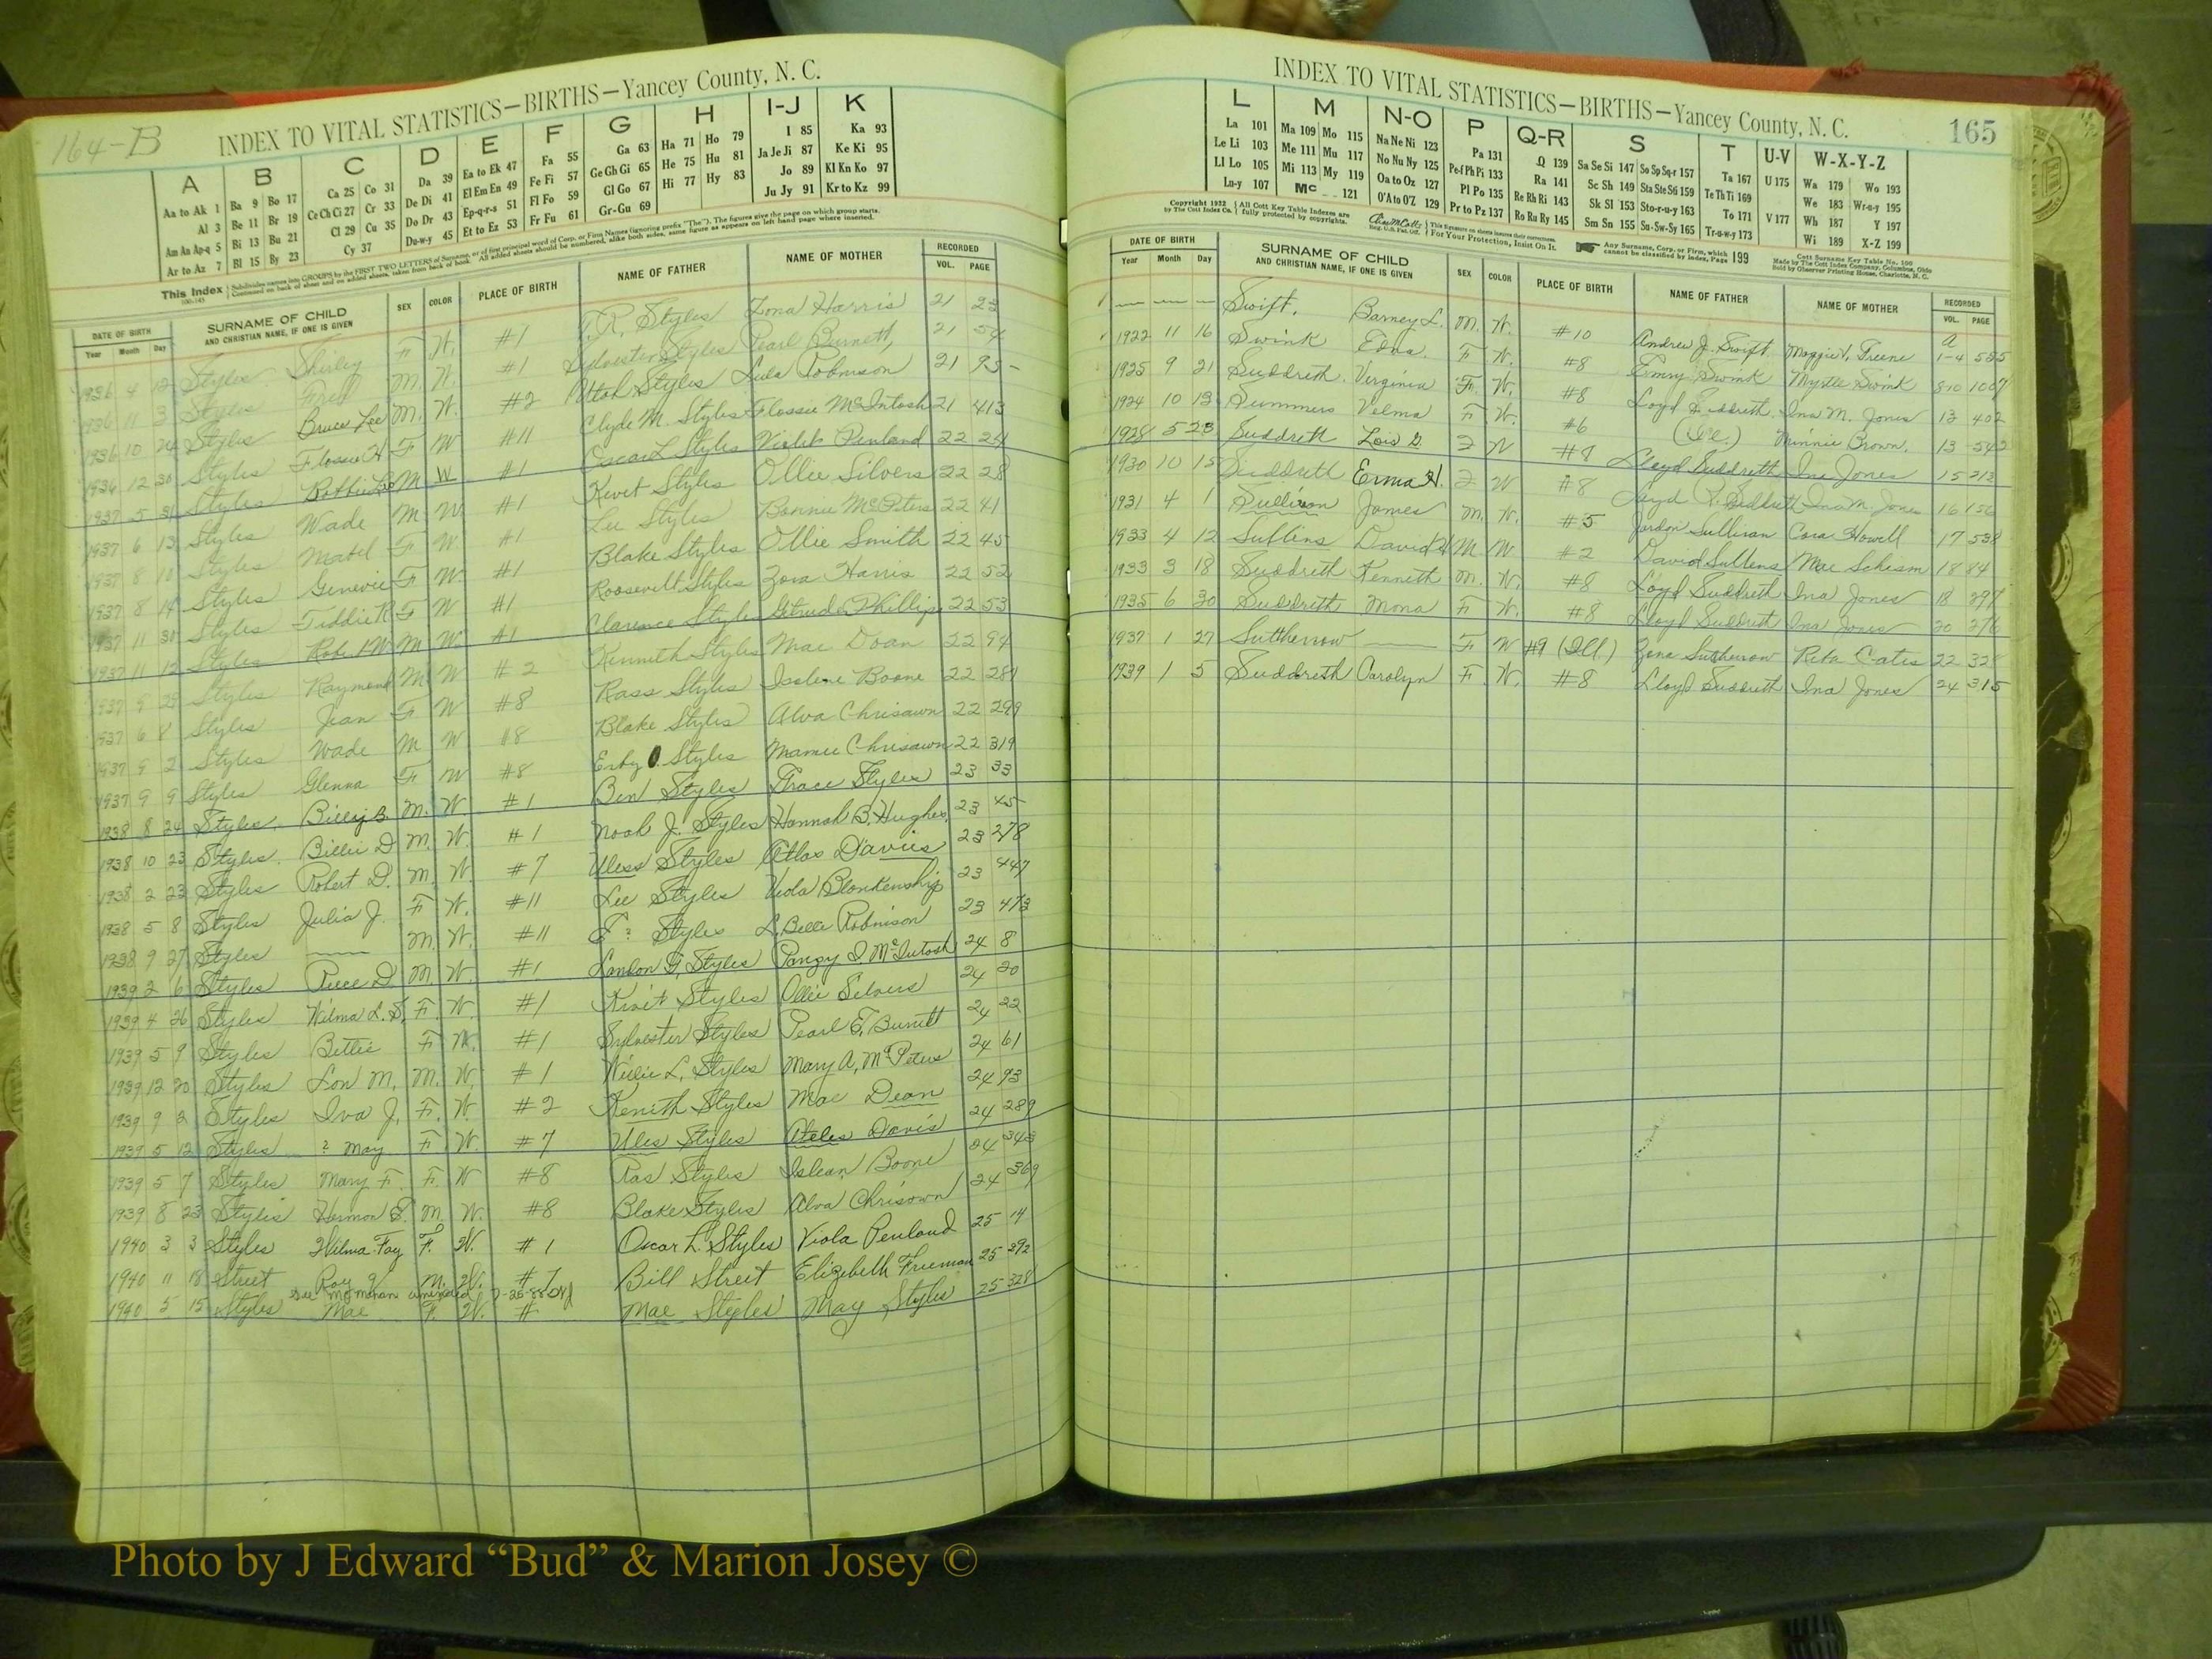 164-B
INDEX TO VITAL STATISTICS—BIRTHS—Yancey County, N. C.
A B C D E F G H I-J K
Aa to Ak 1 Ba 9 Bo 17 Ca 25 Co 31 Da 39 Ea to Ek 47 Fa 55 Ga 63 Ha 71 Ho 79 I 85 Ka 93
Al 3 Be 11 Br 19 Ce Ch Ci 27 Cr 33 De Di 41 El Em En 49 Fe Fi 57 Ge Gh Gi 65 He 75 Hu 81 Ja Je Ji 87 Ke Ki 95
Am An Ap-q 5 Bi 13 Bu 21 Cl 29 Cu 35 Do Dr 43 Ep-q-r-s 51 Fl Fo 59 Gl Go 67 Hi 77 Hy 83 Jo 89 Kl Kn Ko 97
Ar to Az 7 Bl 15 By 23 Cy 37 Du-w-y 45 Et to Ez 53 Fr Fu 61 Gr-Gu 69 Ju Jy 91 Kr to Kz 99
This Index
DATE OF BIRTH SURNAME OF CHILD SEX COLOR PLACE OF BIRTH NAME OF FATHER NAME OF MOTHER RECORDED
Year Month Day AND CHRISTIAN NAME, IF ONE IS GIVEN VOL. PAGE
1936 4 12 Styles Shirley F W. #1 T.R. Styles Zona Harris 21 23
1936 11 3 Styles Fred M. W. #1 Sylvester Styles Pearl Burnett 21 54
1936 10 24 Styles Bruce Lee M. W. #2 Utah Styles Lula Robinson 21 93
1936 12 30 Styles Flossie H F W #11 Clyde M. Styles Flossie McIntosh 21 413
1937 5 31 Styles Bobbie Lee M W #1 Oscar L Styles Violet Penland 22 24
1937 6 13 Styles Wade M W #1 Kevet Styles Ollie Silvers 22 28
1937 8 18 Styles Mabel F W #1 Lee Styles Bonnie McPeters 22 41
1937 8 14 Styles Genevie F W #1 Blake Styles Ollie Smith 22 45
1937 11 30 Styles Tiddie R F W #1 Roosevelt Styles Zora Harris 22 52
1937 11 12 Styles Robert W M W #1 Clarence Styles Gtrude Phillips 22 53
1937 9 25 Styles Raymond M W #2 Kenneth Styles Mae Doan 22 94
1937 6 8 Styles Jean F W #8 Rass Styles Isolene Boone 22 284
1937 9 2 Styles Wade M W #8 Blake Styles Alva Chrisawn 22 299
1937 9 9 Styles Glenna F W #8 Erby O. Styles Mamie Chrisawn 22 319
1938 8 24 Styles Billy B. M. W. #1 Ben Styles Grace Styles 23 33
1938 10 23 Styles. Billie D M. W. #1 Noah J. Styles Hannah B. Hughes 23 45
1938 2 23 Styles Robert D. M. W. #7 Uless Styles Atlas Davis 23 278
1938 5 8 Styles Julia J. F W. #11 Lee Styles Viola Blankenship 23 447
1938 9 27 Styles —— M. W. #11 F ? Styles L. Belle Robinson 23 473
1939 2 6 Styles Reece D M W. #1 Landon G. Styles Pangy I. McIntosh 24 8
1939 4 26 Styles Wilma L. S. F. W. #1 Kivit Styles Ollie Silvers 24 20
1939 5 9 Styles Bettie F W. #1 Sylvester Styles Pearl E. Burnett 24 22
1939 12 20 Styles Lon M. M. W. #1 Willie L. Styles Mary A. McPeters 24 61
1939 9 2 Styles Iva J. F. W. #2 Kenith Styles Mae Dean 24 93
1939 5 12 Styles ? May F. W. #7 Ules Styles Atelas Davis 24 289
1939 5 7 Styles Mary F. F. W #8 Ras Styles Islean Boone 24 343
1939 8 23 Styles Hermon E. M. W. #8 Blake Styles Alva Chrisown 24 369
1940 3 3 Styles Wilma Fay F. W. #1 Oscar L. Styles Viola Penland 25 14
1940 11 18 Street Roy M. W. #7 Bill Street Elizebeth Freeman 25 392
see McMahan amended
1940 5 15 Styles Mae F. W. # Mae Styles May Styles 25 328
INDEX TO VITAL STATISTICS—BIRTHS—Yancey County, N. C. 165
L M N-O P Q-R S T U-V W-X-Y-Z
La 101 Ma 109 Mo 115 Na Ne Ni 123 Pa 131 Q 139 Sa Se Si 147 So Sp Sq-r 157 Ta 167 U 175 Wa 179 Wo 193
Le Li 103 Me 111 Mu 117 No Nu Ny 125 Pe Pf Ph Pi 133 Ra 141 Sc Sh 149 Sta Ste Sti 159 Te Th Ti 169 We 183 Wr-u-y 195
Ll Lo 105 Mi 113 My 119 Oa to Oz 127 Pl Po 135 Re Rh Ri 143 Sk Sl 153 Sto-r-u-y 163 To 171 V 177 Wh 187 Y 197
Lu-y 107 Mc 121 O'A to O'Z 129 Pr to Pz 137 Ro Ru Ry 145 Sm Sn 155 Su-Sw-Sy 165 Tr-u-w-y 173 Wi 189 X-Z 199
Copyright 1922 by The Cott Index Co. All Cott Key Table Indexes are fully protected by copyrights. This Signature on sheets insures their correctness. For Your Protection, Insist On It. Any Surname, Corp. or Firm, which cannot be classified by index, Page 199
Cott Surname Key Table No. 100 Made by The Cott Index Company, Columbus, Ohio Sold by Observer Printing House, Charlotte, N. C.
DATE OF BIRTH SURNAME OF CHILD SEX COLOR PLACE OF BIRTH NAME OF FATHER NAME OF MOTHER RECORDED
Year Month Day AND CHRISTIAN NAME, IF ONE IS GIVEN VOL. PAGE
— — — Swift, Barney L. M. W. #10 Andrew J. Swift Maggie V. Greene A 1-4 555
1922 11 16 Swink Edna F W. #8 Emry Swink Myrtle Swink 8-10 1067
1925 9 21 Suddreth Virginia F. W. #8 Loyd Suddreth Ina M. Jones 13 402
1924 10 13 Summers Velma F W. #6 (Ill.) Minnie Brown. 13 542
1928 5 23 Suddreth Lois G. F W #8 Lloyd Suddreth Ina Jones 15 213
1930 10 15 Suddreth Erma H. F W #8 Loyd L. Suddreth Ina M. Jones 16 156
1931 4 1 Sullivan James M. W. #5 Jordon Sullivan Cora Howell 17 538
1933 4 12 Suttins David H M W #2 David Suttens Mae Schism 18 84
1933 3 18 Suddreth Kenneth M. W. #8 Loyd Suddreth Ina Jones 18 297
1935 6 30 Suddreth Mona F W. #8 Lloyd Suddreth Ina Jones 20 276
1937 1 27 Suttherrow —— F W #9 (Ill.) Zena Suttherrow Reta Cates 22 328
1939 1 5 Suddreth Carolyn F. W. #8 Lloyd Suddreth Ina Jones 24 315
Photo by J Edward “Bud” & Marion Josey ©